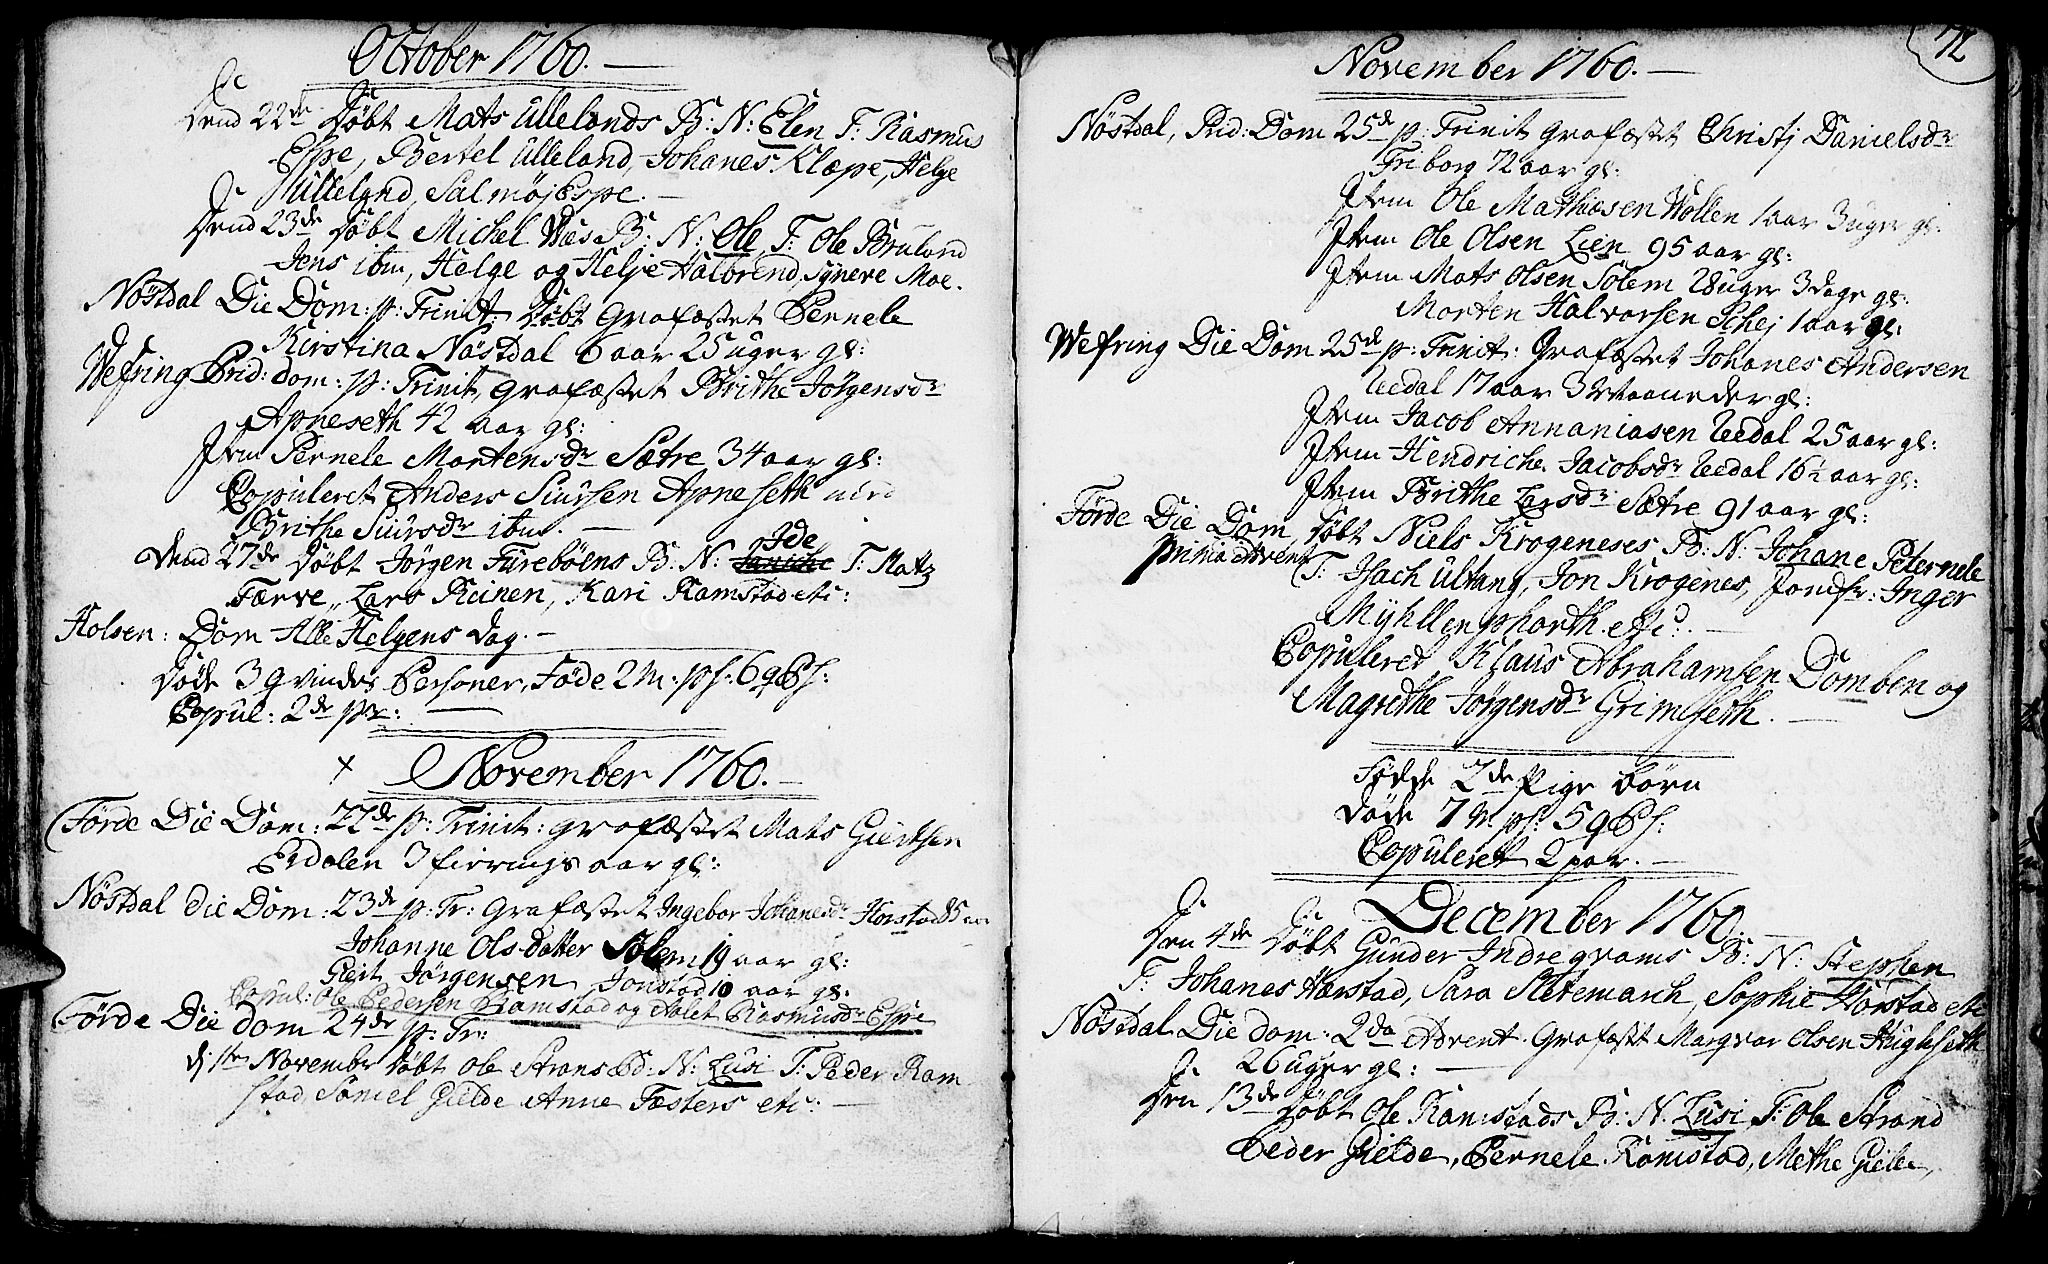 October 1760.
Dend 22de Döbt Mats Ullelands B: N: Elen F: Rasmus
Espe, Bertel Ulleland, Johanes Klæpe, Helge
Ulleland, Salmøj Espe.
Dend 23de Döbt Michel Wæs B: N: Ole F: Ole Bruland
Jens ibm, Helge og Helje Halbrend, Syneve Moe.
Nöstdal Die Dom: p: Trinit: Döbt Grafæstet Pernele
Kirstina Nöstdal 6 aar 25 uger gl:
Wefring Prid: dom: p: Trinit, grafæstet Brithe Jörgensdr
Apneseth 42 aar gl:
Item Pernele Mortensdr Sætre 34 aar gl:
Copuleret Anders Siursen Apneseth med
Brithe Siursdr ibm.
Ide
Dend 27de Döbt Jörgen Füreböens B: N: Janiche F: Mats
Færve, Lars Reinen, Kari Ramstad etc:
Holsen: Dom Alle Helgens Dag.
Döde 3 qvindes Personer, Föde 2 M: ps: 6 qPs:
Copul: 2de Pr:
x November 1760.
Förde Die Dom: 22de p: Trinit: grafæstet Mats Giertsen
Erdalen 3 fierrings aar gl:
Nöstdal Die Dom: 23de p: Tr: Grafæstet Ingebor Johanesdr Horstad 85 aar
Johanne Olsdatter Solem 19 aar gl:
Giert Jörgensen Jonstad 10 aar gl:
Copul: Ole Pedersen Ramstad og Aalet Rasmusdr Espe
Förde Die dom 24de p: Tr:
d: 1ste November Döbt Ole Strans B: N: Lusi F: Peder Ram
stad Samel Gielde Anne Fæsters etc:
72
November 1760.
Nöstdal, Prid: Dom 25de p: Trinit Grafæstet Christj Danielsdr
Friborg 72 aar gl:
Item Ole Mathiasen Wollen 1 aar 3 uger gl:
Item Ole Olsen Lien 95 aar gl:
Item Mats Olsen Solem 2 uger 3 dage gl:
Morten Halvorsen Schej 1 aar gl:
Wefring Die Dom 25de p: Trinit: Grafæstet Johanes Andersen
Uedal 17 aar 3 Maaneder gl:
Item Jacob Annaniasen Uedal 25 aar gl:
Item Hendriche Jacobsdr Uedal 16½ aar gl:
Item Brithe Larsdr Sætre 91 aar gl:
Förde Die Dom, Döbt Niels Krogeneses B: N: Johane Peternele
prima Advent F: Isach Ultang, Jon Krogenes, Jomfr: Inger
Myhllenphorth etc:
Copuleret Klaus Abrahamsen Domben og
Magrethe Jörgensdr Grimseth.
Födde 2de Pige börn
Döde 7 M: ps: 5 qPs:
Copuleret 2 par.
December 1760.
Den 4de Döbt Gunder Indreqvams B: N: Stephen
F: Johanes Hærstad, Sara Sletemarch, Sophie Horstad etc
Nöstdal Die dom: 2da Advent. Grafæstet Margvar Olsen Hughseth
26 uger gl:
Den 13de Döbt Ole Ramstads B: N: Lusi F: Ole Strand
Peder Gielde, Pernele Ramstad, Methe Gielde,